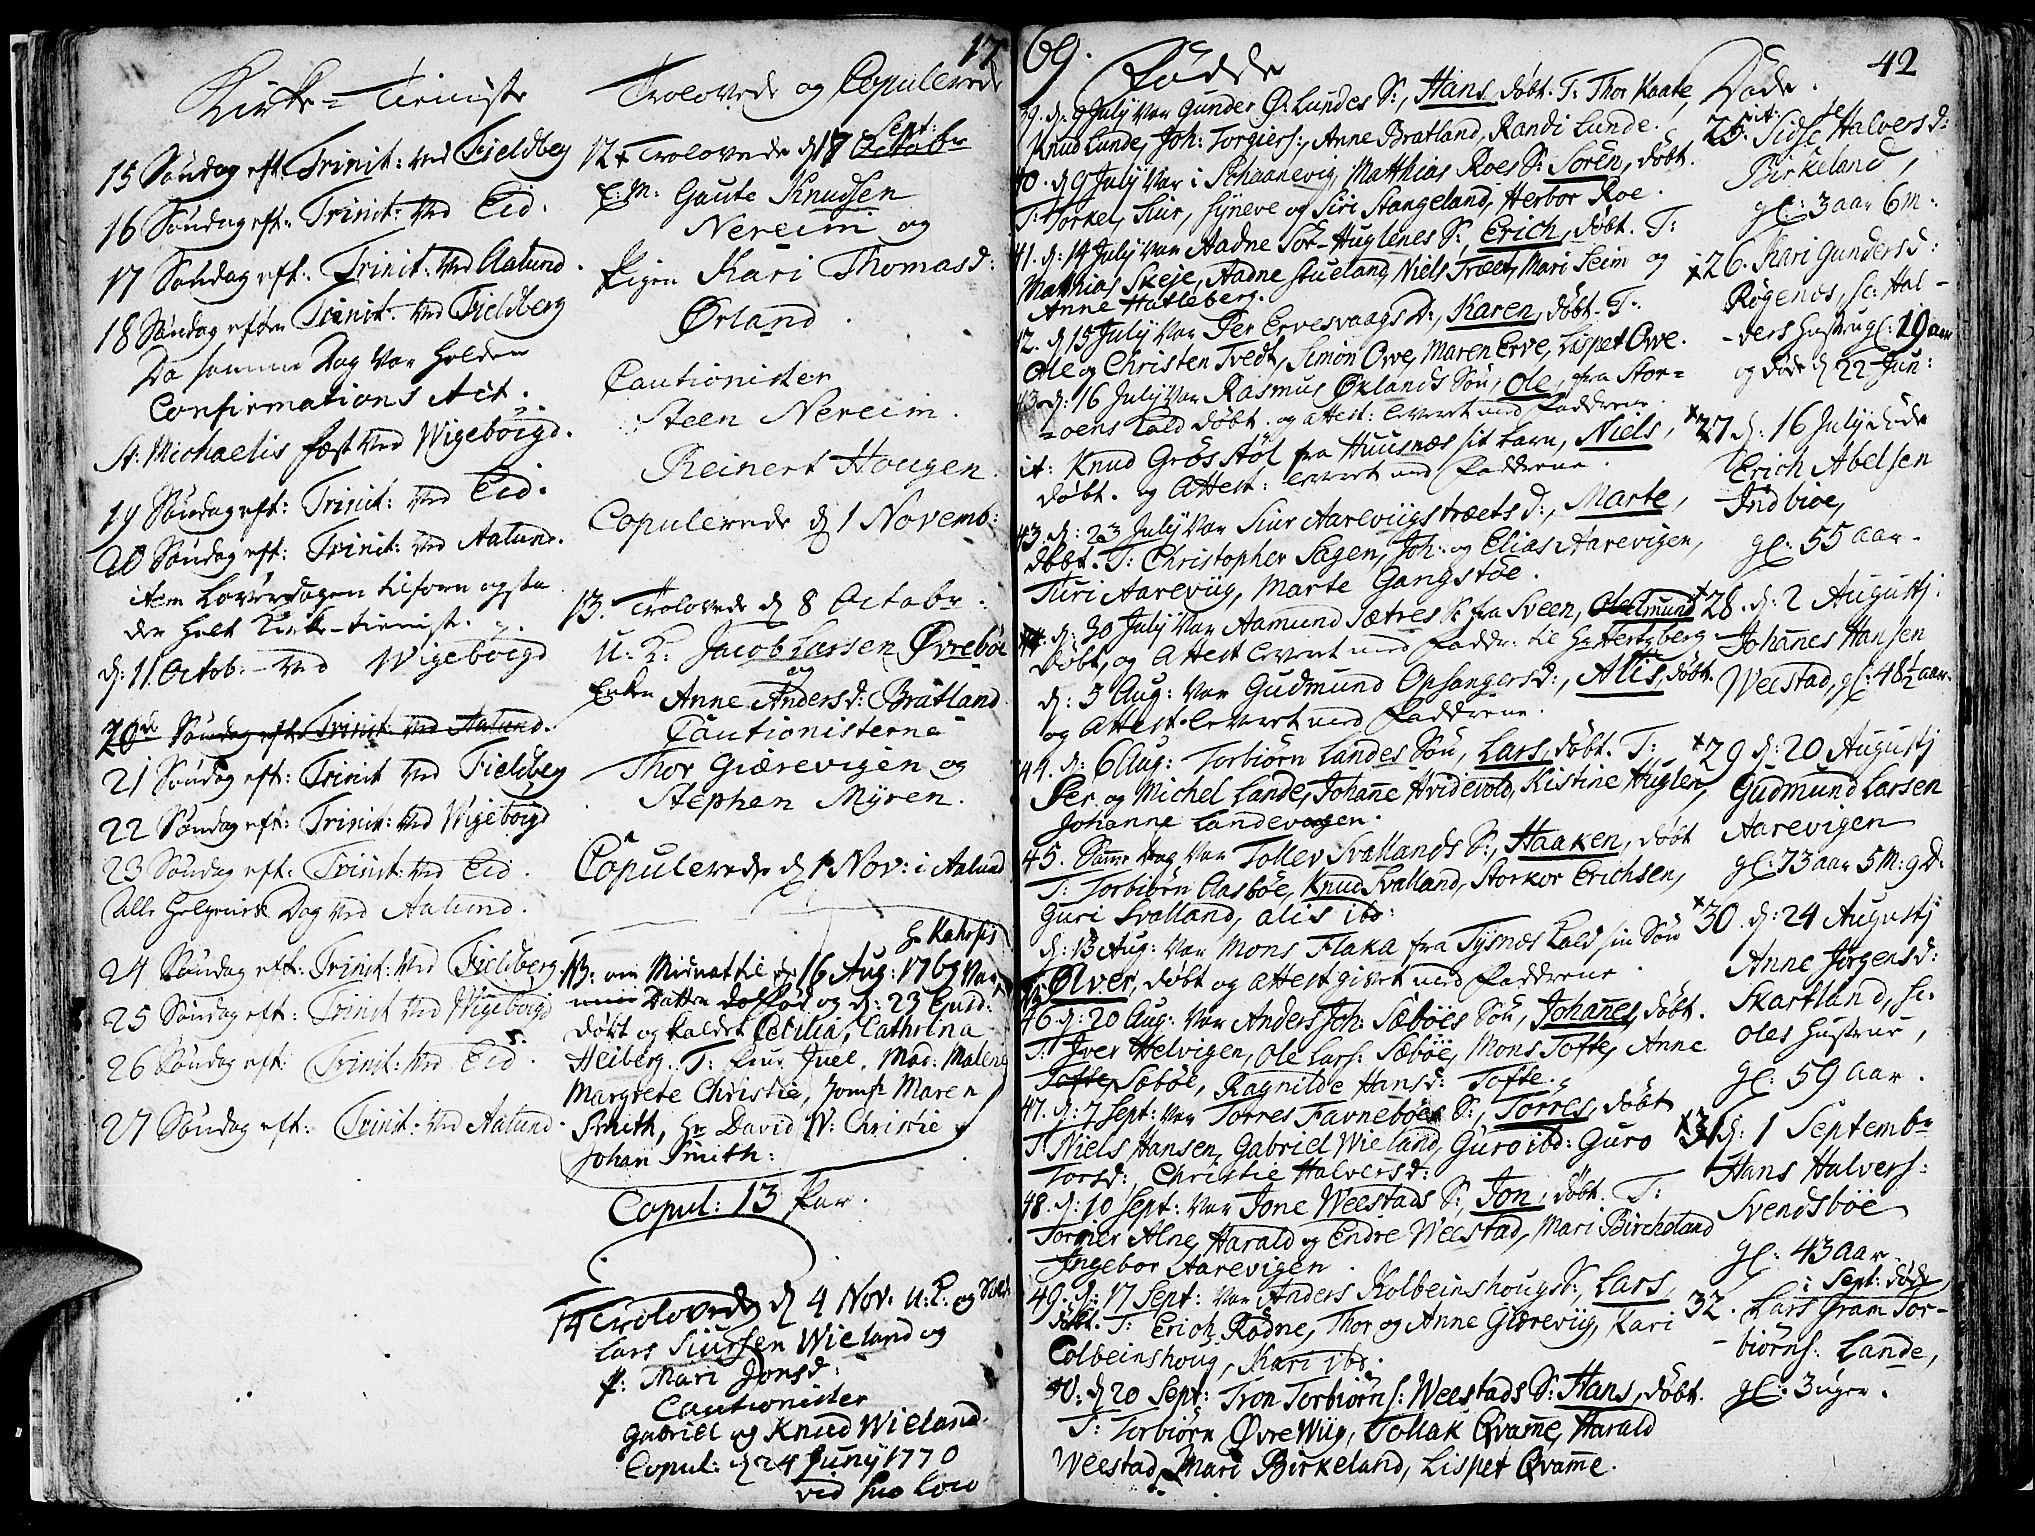 17
Kirke=Tieniste
15 Søndag eft: Trinit: ved Fieldberg
16 Søndag eft: Trinit: ved Eid.
17 Søndag eft: Trinit: ved Aalund.
18 Søndag efter Trinit: ved Fieldberg
Da samme Dag var holden
Confirmations Act.
St: Michaelis fæst ved Wigebøigd.
19 Søndag eft: Trinit: ved Eid.
20 Søndag eft: Trinit: ved Aalund.
item Løverdagen tilforn ogsaa
der holt Kirke-tienist.
d: 11 Octob. ved Wigebøigd
20de Søndag eft: Trinit: ved Aalund.
21 Søndag eft: Trinit ved Fieldberg
22 Søndag eft: Trinit: ved Wigebøigd
23 Søndag eft: Trinit: ved Eid.
Alle Helgenes Dag ved Aalund.
24 Søndag eft: Trinit: ved Fieldberg
25 Søndag eft: Trinit ved Wigebøigd
26 Søndag eft: Trinit: ved Eid.
27 Søndag eft: Trinit: ved Aalund.
Trolovede og Copulerede
Sept:
12 Trolovede d 17 Octobr
E: M: Gaute Knudsen
Nereim og
Pigen Kari Thomasd:
Ørland.
Cautionister
Steen Nereim.
Reinert Hougen.
Copulerede d 1 Novemb:
13. Trolovede d 8 Octobr.
U: K: Jacob Larsen Øvrebøe
og
Enken Anne Andersd: Bratland
Cautionisterne
Thor Giærevigen og
Stephen Myren.
Copulerede d 1 Nov: i Aalund
NB: om Midnat til d: 16 Aug: 1769 var
min Datter født og d: 23 Ejusd:
døbt og kaldet Cecilia, Cathrina
Heiberg. T: Juel, Mad: Malene
Margrete Christie, Jomf: Maren
Smith, Hr David W: Christie
Johan Smith:
Copul: 13 Par.
14 Trolovede d 4 Nov. U: K: og
Lars Siursen Wieland og
P: Mari Jonsd:
Cautionister
Gabriel og Knud Wieland.
Copul: d 24 Juny 1770
69.
Fødde
39. d: 9 July var Gunder Ø: Lundes S:, Hans døbt. T: Thor Kaate,
Knud Lunde, Joh: Torgiers:, Anne Bratland, Randi Lunde.
40. d 9 July var i Schaanevig Matthias Roes S: Søren, døbt.
T: Torkel, Siur, Syneve og Siri Stangeland, Herbor Roe.
41. d: 14 July var Aadne Sør-Huglenes S:, Erich, døbt. T:
Matthias Skeje, Aadne Stueland, Niels Træet, Mari Seim og
Anne Hatleberg.
42. d 15 July var Per Ervesvaags D:, Karen, døbt. T:
Ole og Christen Tvedt, Simon Ovve, Maren Erve, Lispet Ovve.
43. d: 16 July var Rasmus Ørlands Søn, Ole, fra Stor=
=oens Kald døbt. og attest: levert med Fadderene.
it: Knud Grøsstøl fra Huusnæs sit barn, Niels,
døbt. og Attest: levert med Fadderene.
43. d: 23 July var Siur Aareviigstræets d:, Marte,
døbt. T: Christopher Sagen, Joh: og Elias Aarevigen,
Turi Aareviig, Marte Gangstøe.
44. d: 30 July var Aamund Sætres S: fra Sveen,
døbt, og Attest levert med Faddr: til Hr Hertzberg
d: 3 Aug: var Gudmund Opsangers d:, Alis, døbt.
og Attest levert med Fadderene.
44. d. 6 Aug: Torbiørn Landes Søn, Lars, døbt. T:
Per og Michel Lande, Johanne Hvidevold, Kistine Huglen,
Johanne Landevogen.
45. Samme Dag var Tollev Svallands S:, Haaken, døbt
T: Torbiørn Aasbøe, Knud Svalland, Storkor Erichsen,
Guri Svalland, Alis ibd:
d: 13 Aug: var Mons Flaka fra Tysnæs Kald sin Søn
Ølver, døbt og attest givet med Fadderene.
46. d: 20 Aug: var Anders Joh: Sæbøes Søn, Johannes, døbt.
T: Iver Helvigen, Ole Lars: Sæbøe, Mons Tofte, Anne
Tofte Sæbøe, Ragnilde Hansd: Tofte.
47. d: 7 Sept: var Torres Favnebøes S:, Torres, døbt
T: Niels Hansen, Gabriel Wieland, Guro ibd: Guro
Torsd:, Christie Halversd:
48. d: 10 Sept: var Jone Weestads S:, Jon, døbt. T:
Torgier Alne, Harald og Endre Weestad, Mari Bircheland
Ingebor Aarevigen.
49. d: 17 Sept: var Anders Kolbeinshougs S:, Lars,
døbt. T: Erich Rødne, Thor og Anne Giæreviig, Kari
Colbeinshoug, Kari ibd.
50. d 20 Sept: Tron Torbiørns: Weestads S: Hans, døbt.
T: Torbiørn Øvre Wiig, Tollak Qvamme, Harald
Weestad, Mari Birkeland, Lispet Qvamme.
42
Døde.
25. Sidse Halversd:
Birkeland,
gl: 3 aar 6 m:
26. Kari Gundersd:
Røgenes, sc: Hal-
-vers Hustru gl: 19 aar
og døde d 22 Jun:
27 d: 16 July døde
Erich Abelsen
Indbioe,
gl: 55 aar.
28. d: 2 Augustj.
Johannes Hansen
Weestad, gl: 48½ aar.
29 d: 20 Augustj
Gudmund Larsen
Aarevigen
gl: 73 aar 5 M: 9 D:
30. d: 24 Augustj
Anne Jørgensd:
Skartland, sc:
Oles Hustrue,
gl: 59 aar.
31 d: 1 Septembr
Hans Halvers:
Svendsbøe
gl: 43 aar.
i Sept: døde
32. Lars Gram Tor-
-biørns: Lande,
gl: 3 uger.